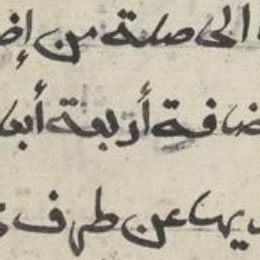 الى صلة من إض
ضافة أربعة أبعا
يها عن طرف